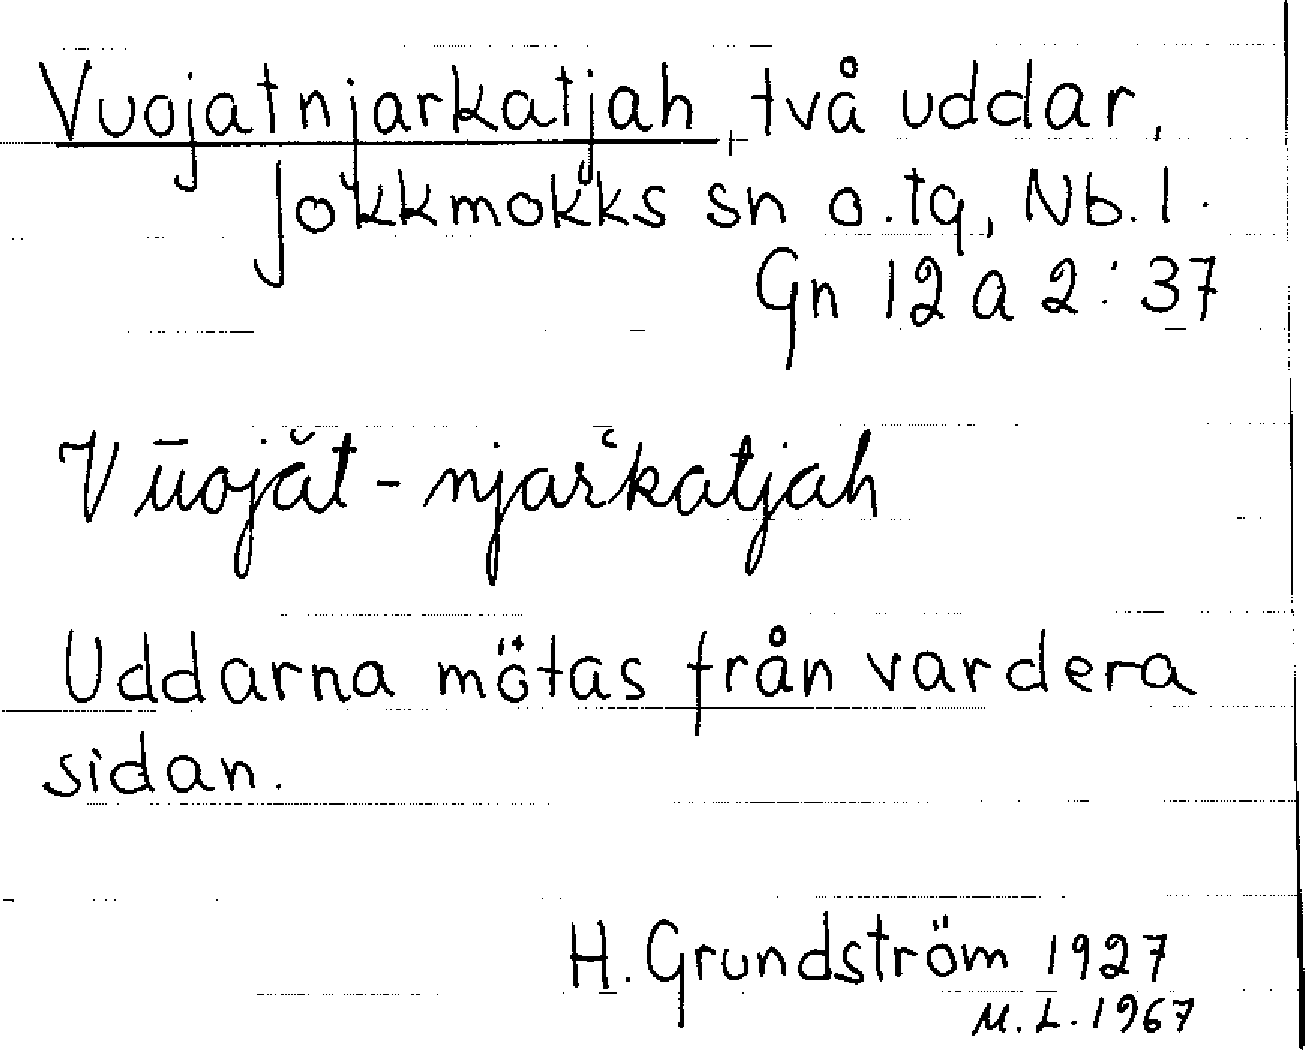 Vuojatnjarkatjah, två uddar,
Jokkmokks sn o. tg, Nb. l.
Gn 12 a 2:37
Vūojăt-njar̆katjah
Uddarna mötas från vardera
sidan.
H. Grundström 1927
M. L. 1967